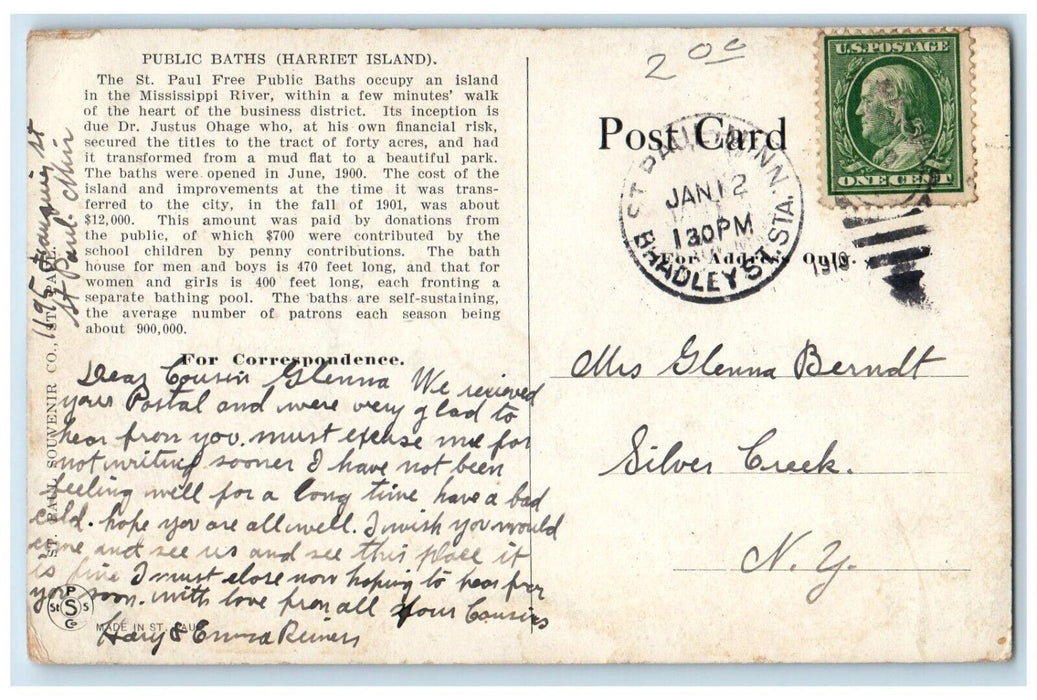 PUBLIC BATHS (HARRIET ISLAND).
The St. Paul Free Public Baths occupy an island
in the Mississippi River, within a few minutes' walk
of the heart of the business district. Its inception is
due Dr. Justus Ohage who, at his own financial risk,
secured the titles to the tract of forty acres, and had
it transformed from a mud flat to a beautiful park.
The baths were opened in June, 1900. The cost of the
island and improvements at the time it was trans-
ferred to the city, in the fall of 1901, was about
$12,000. This amount was paid by donations from
the public, of which $700 were contributed by the
school children by penny contributions. The bath
house for men and boys is 470 feet long, and that for
women and girls is 400 feet long, each fronting a
separate bathing pool. The baths are self-sustaining,
the average number of patrons each season being
about 900,000.
For Correspondence.
Dear Cousin Glenna We recieved
your Postal and were very glad to
hear from you. must excuse me for
not writing sooner I have not been
feeling well for a long time have a bad
cold. hope you are all well. I wish you would
come and see us and see this place it
is fine I must close now hoping to hear from
you soon. with love from all Your Cousins
Hary & Emma Reiners
1195
St Paul. Min
ST. PAUL SOUVENIR CO., ST. PAUL
P
St S S
Co
MADE IN ST. PAUL
2 00
Post Card
For Address Only.
ST PAUL, MINN.
JAN 12
130PM
BRADLEY ST. STA.
U.S. POSTAGE
ONE CENT
Mrs Glenna Berndt
Silver Creek.
N. Y.